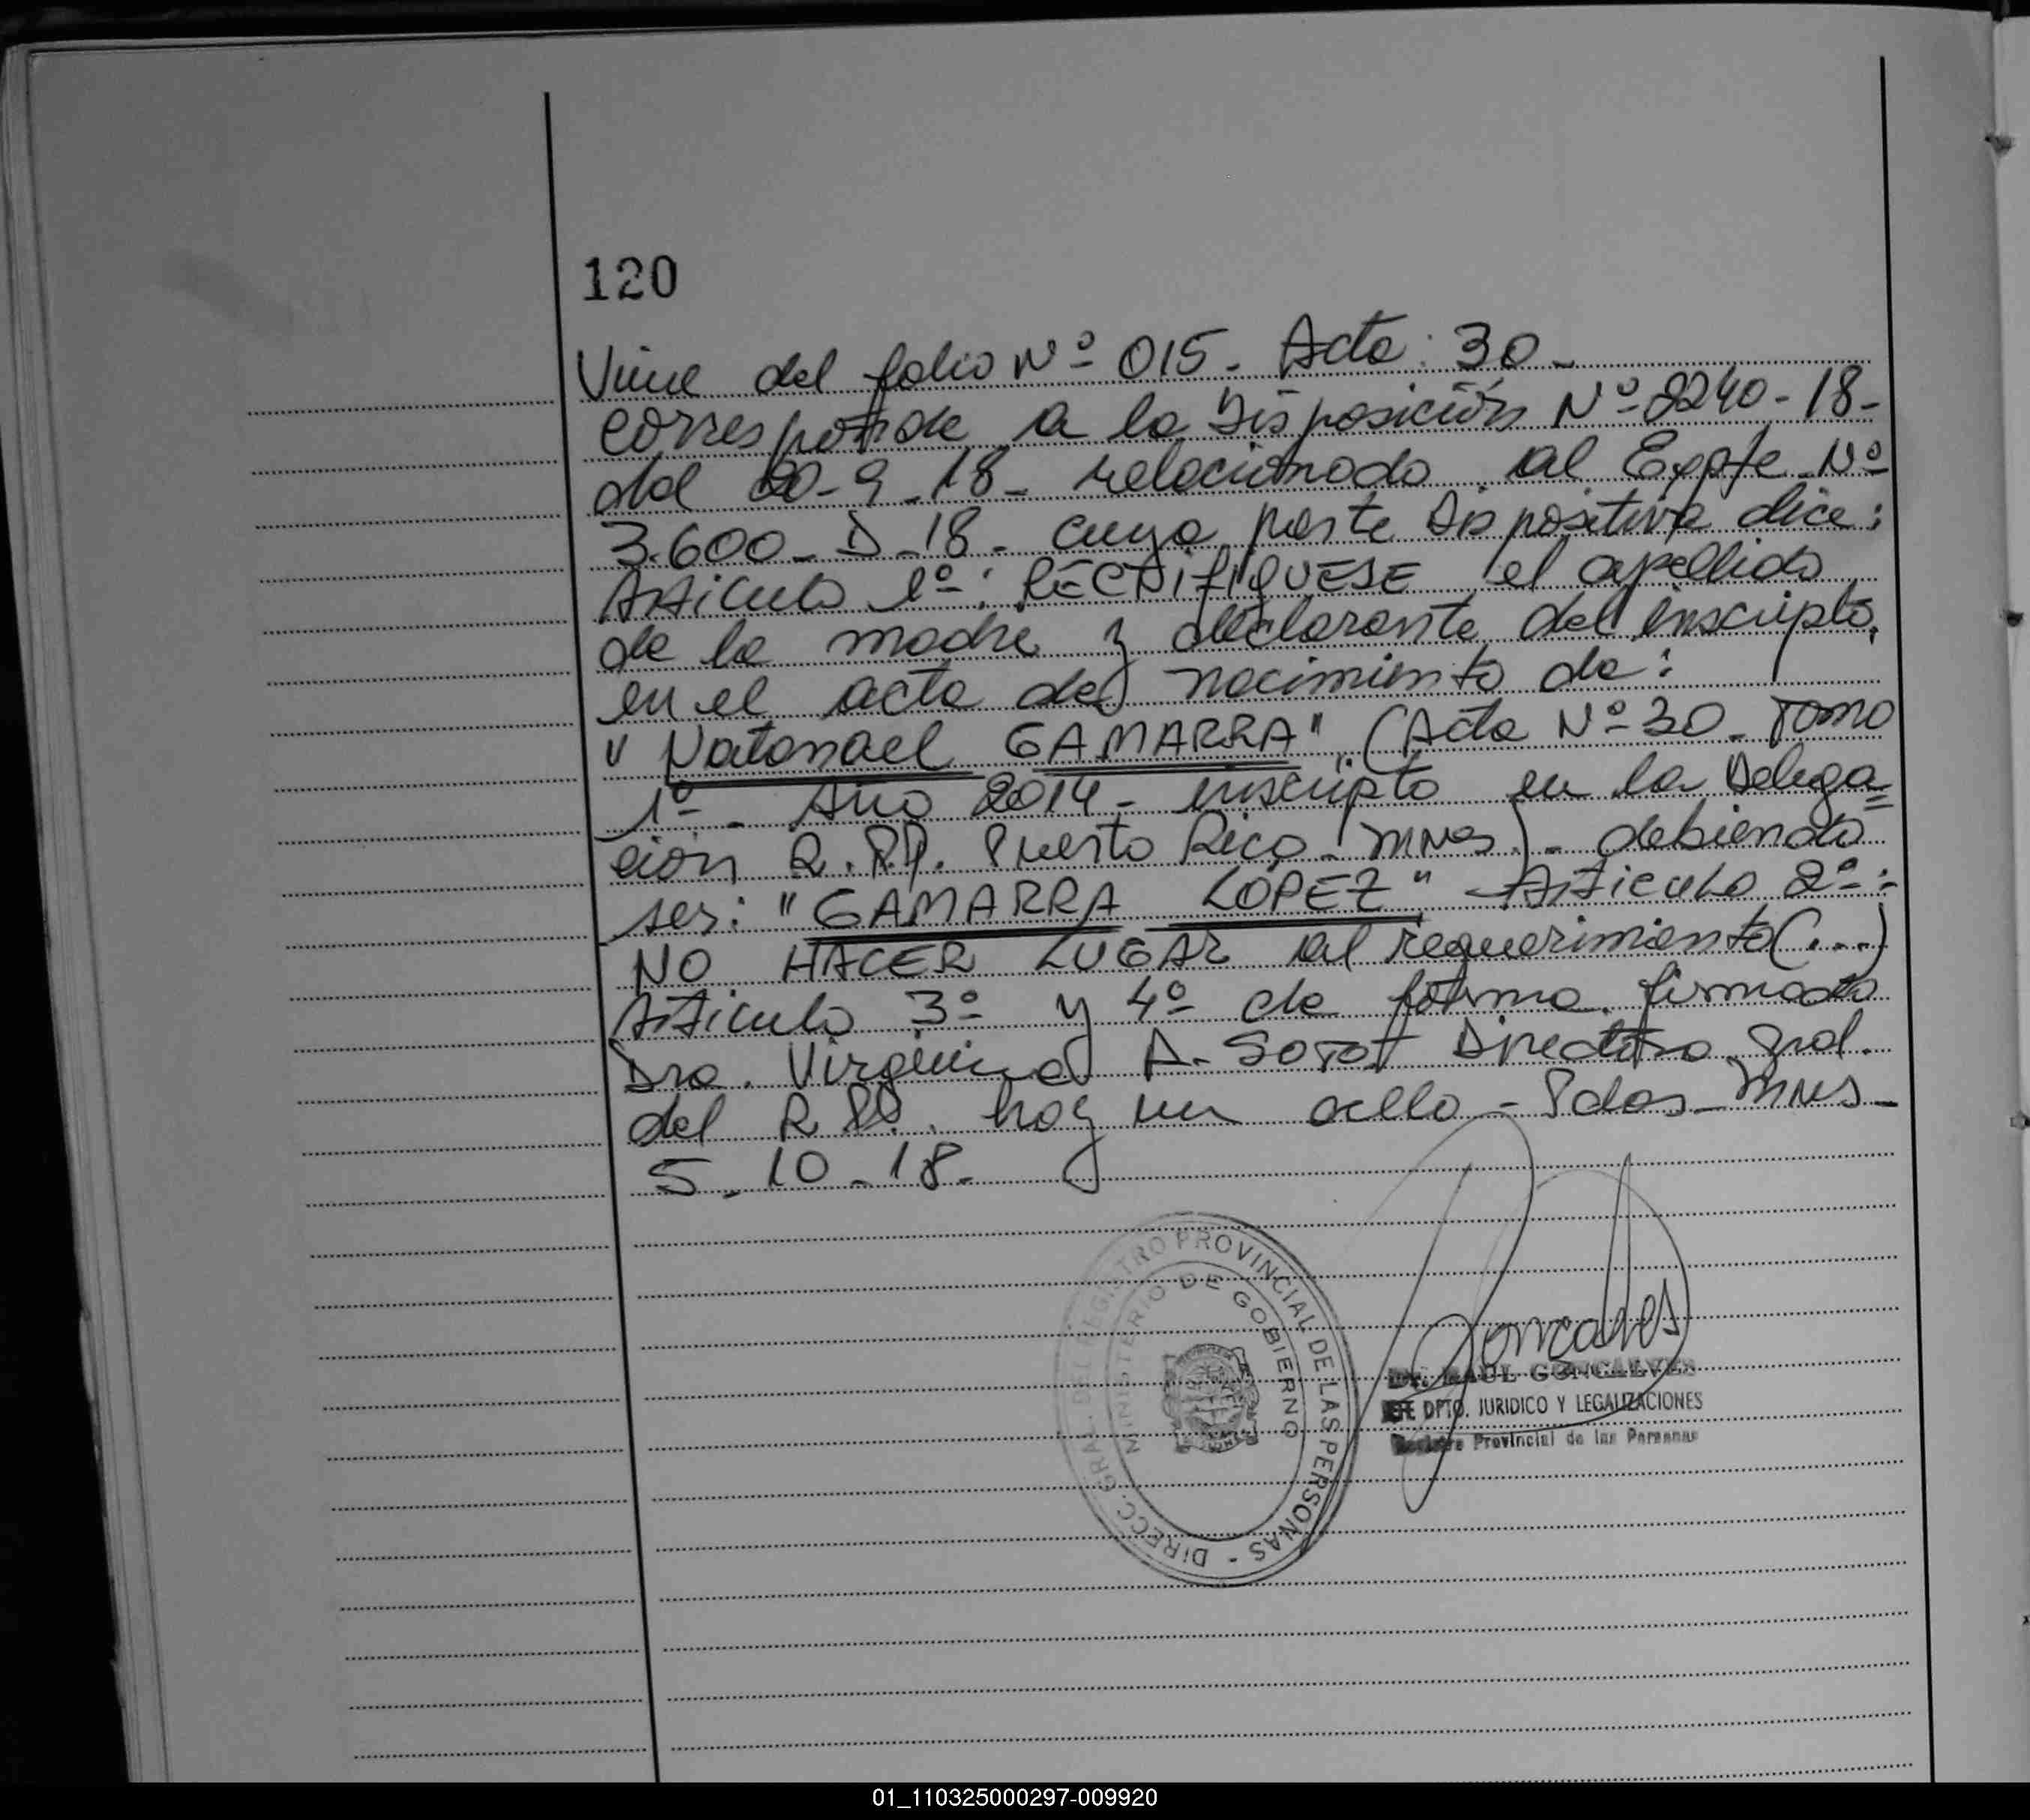 120
Viene del folio Nº 015. Acta: 30-
corresponde a la Disposición Nº 2240-18-
del 20-9-18- relacionado al Expte Nº
3.600-D-18- cuya parte Dispositiva dice:
Articulo 1º: RECTIFIQUESE el apellido
de la madre y declarante del inscripto,
en el acta de nacimiento de:
"Natanael GAMARRA". (Acta Nº 30- Tomo
1º- Año 2014- inscripto en la Delega=
ción R.P.P. Puerto Rico- Mnes)- debiendo
ser: "GAMARRA LOPEZ" Articulo 2º:
NO HACER LUGAR al requerimiento (...)
Articulo 3º y 4º de forma. firmado
Dra. Virginia A. Soto Directora Gral.
del R.PP. hay un sello - Pdas- Mnes-
5-10-18-
DIRECC. GRAL. DEL REGISTRO PROVINCIAL DE LAS PERSONAS -
MINISTERIO DE GOBIERNO
Goncalves
Dr. RAUL GONCALVES
JEFE DPTO. JURIDICO Y LEGALIZACIONES
Registro Provincial de las Personas
01_110325000297-009920